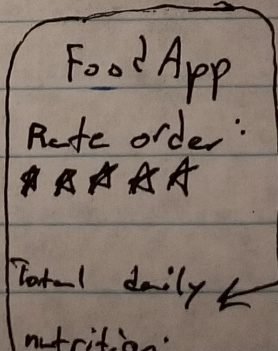 Food App
Rate order:
☆ ☆ ☆ ☆ ☆
Total daily
nutrition: